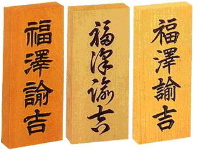 福澤諭吉
福澤諭吉
福澤諭吉